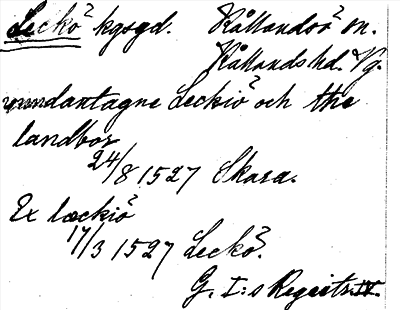 Leckö kgsgd. Kållandsö sn.
Kållands hd. Vg.
undantagne Leckiö och the
landbor
24/8 1527 Skara.
Ex læckiö
17/3 1527 Leckö.
G. I:s Registr. IV.